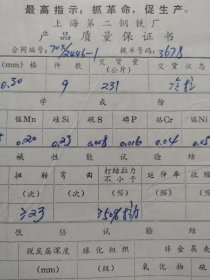 最高指示:抓革命,促生产。
上海第二钢铁厂
产品质量保证书
合同编号: 707/2446-1 提单号码: 3678
(mm) 格 件数 交货量(公斤) 交货状态
0.30 9 231
学 成
锰Mn 硅Si 硫S 磷P 铬Cr 镍Ni
0.20 0.23 0.008 0.016 0.04 0.05
械 性 能 试 验 结
扭转 弯曲 打结拉力不小于 延伸率 收缩
(次) (次) (%) (%)
≥23
低 倍 试 验 结
脱炭层深度 球化组织 非金属夹
(mm) (级) 氧化物 硫